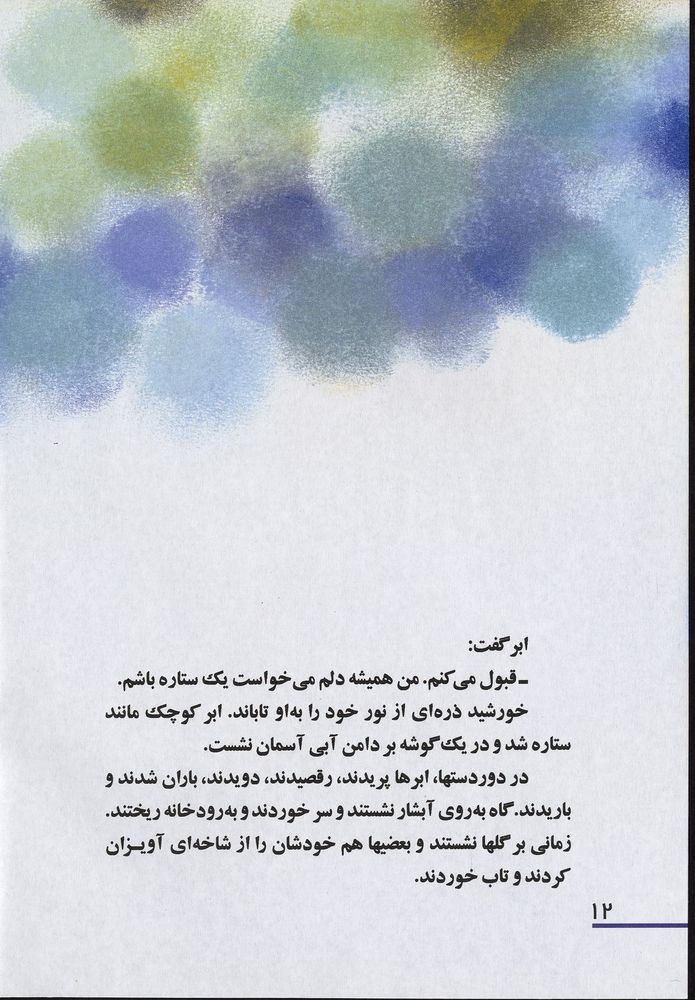 ابر گفت:
ـ قبول می‌کنم. من همیشه دلم می‌خواست یک ستاره باشم.
خورشید ذره‌ای از نور خود را به‌او تاباند. ابر کوچک مانند
ستاره شد و در یک گوشه بر دامن آبی آسمان نشست.
در دوردستها، ابرها پریدند، رقصیدند، دویدند، باران شدند و
باریدند. گاه به‌روی آبشار نشستند و سر خوردند و به‌رودخانه ریختند.
زمانی بر گلها نشستند و بعضیها هم خودشان را از شاخه‌ای آویـزان
کردند و تاب خوردند.
۱۲